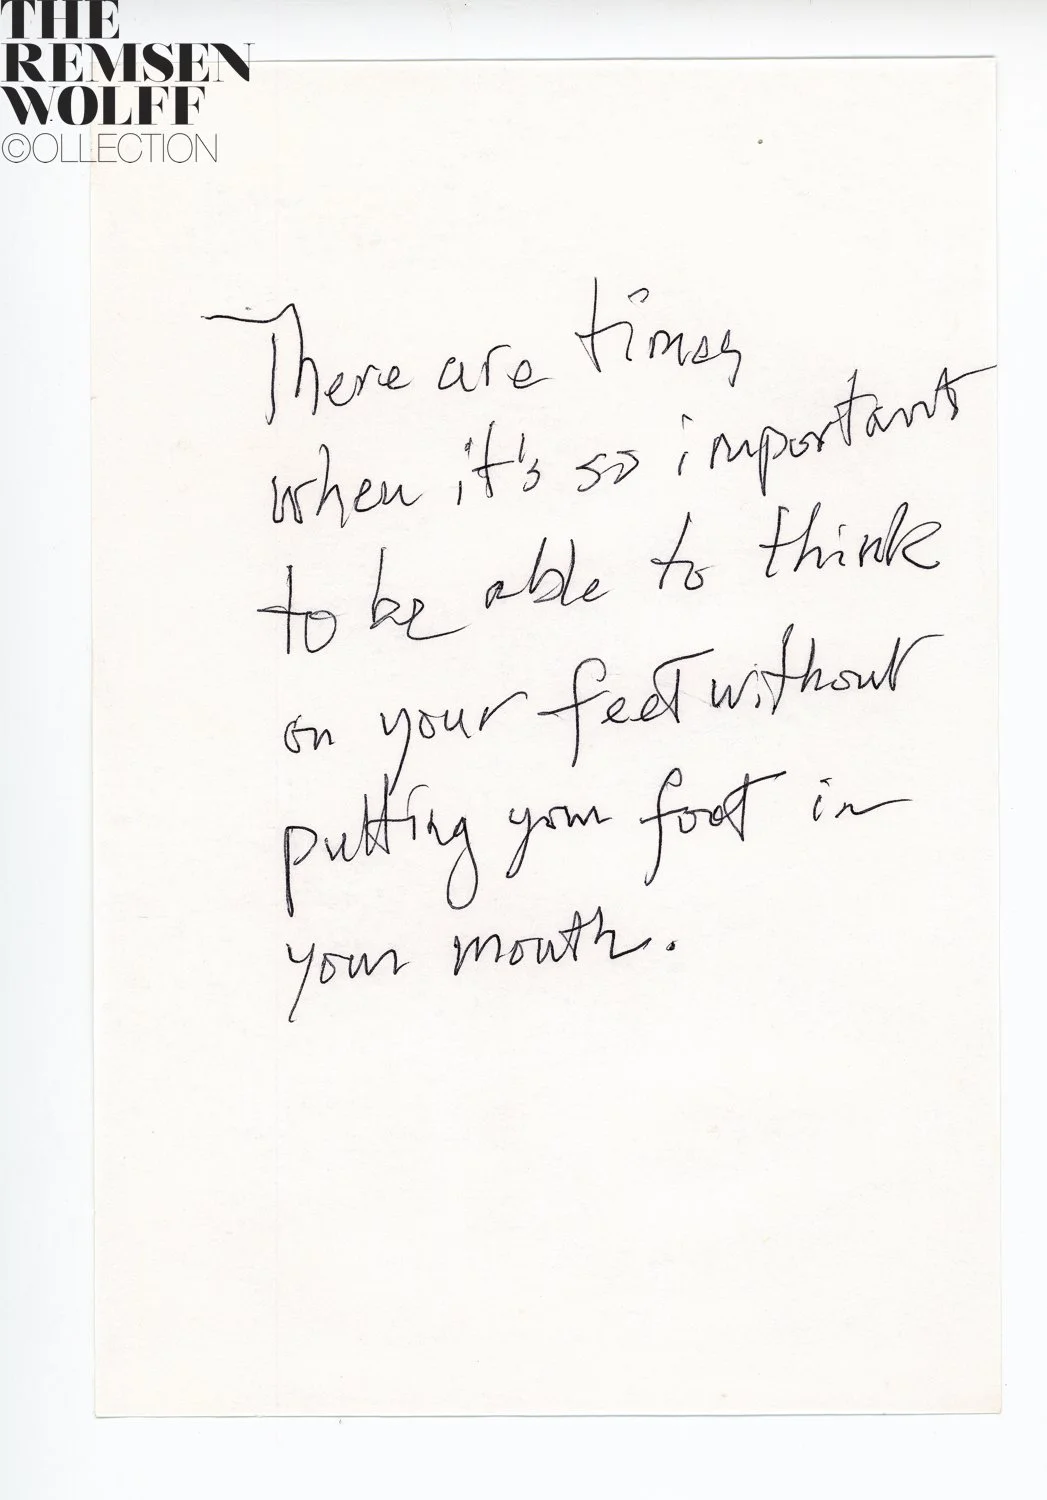 THE
REMSEN
WOLFF
©OLLECTION
There are times
when it's so important
to be able to think
on your feet without
putting your foot in
your mouth.